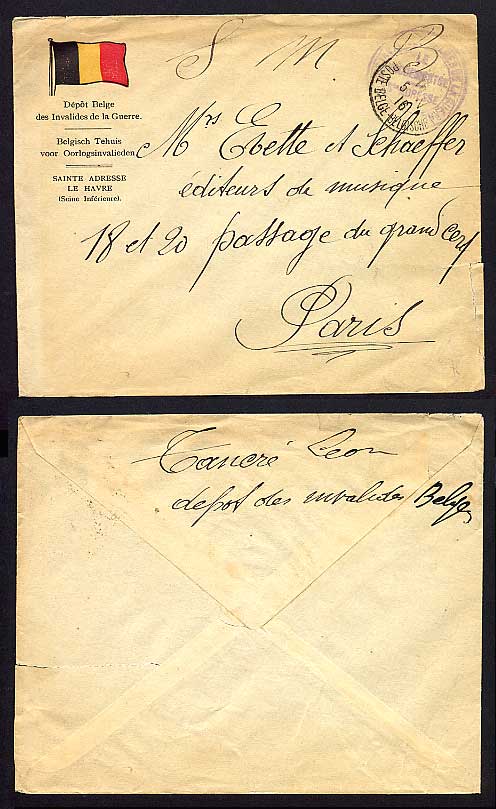 Dépôt Belge
des Invalides de la Guerre.
Belgisch Tehuis
voor Oorlogsinvalieden
SAINTE ADRESSE
LE HAVRE
(Seine Inférieure).
S M B
Mrs Evette et Schaeffer
éditeurs de musique
18 et 20 passage du grand cerf
Paris
Tancré Leon
depot des invalides Belges